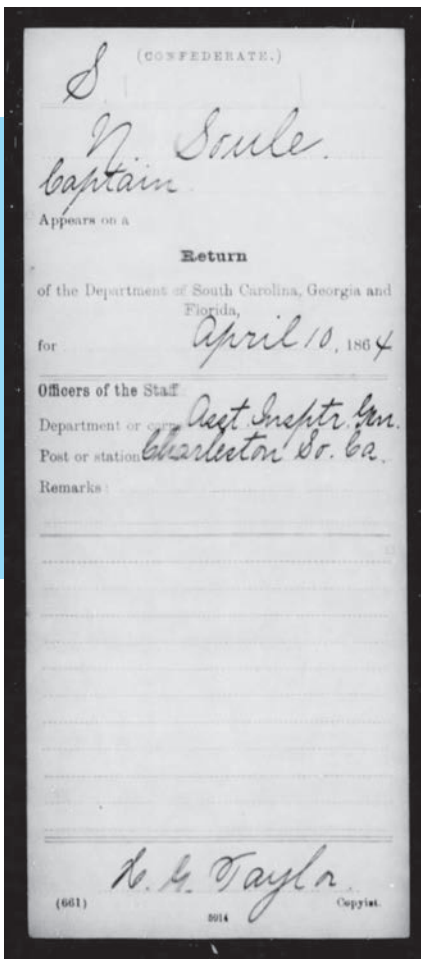 (CONFEDERATE.)
S
N. Soule.
Captain
Appears on a
Return
of the Department of South Carolina, Georgia and
Florida,
for April 10, 1864
Officers of the Staff
Department or corps Asst. Insptr. Gen.
Post or station Charleston So. Ca.
Remarks:
H. G. Taylor.
(661) Copyist.
5014